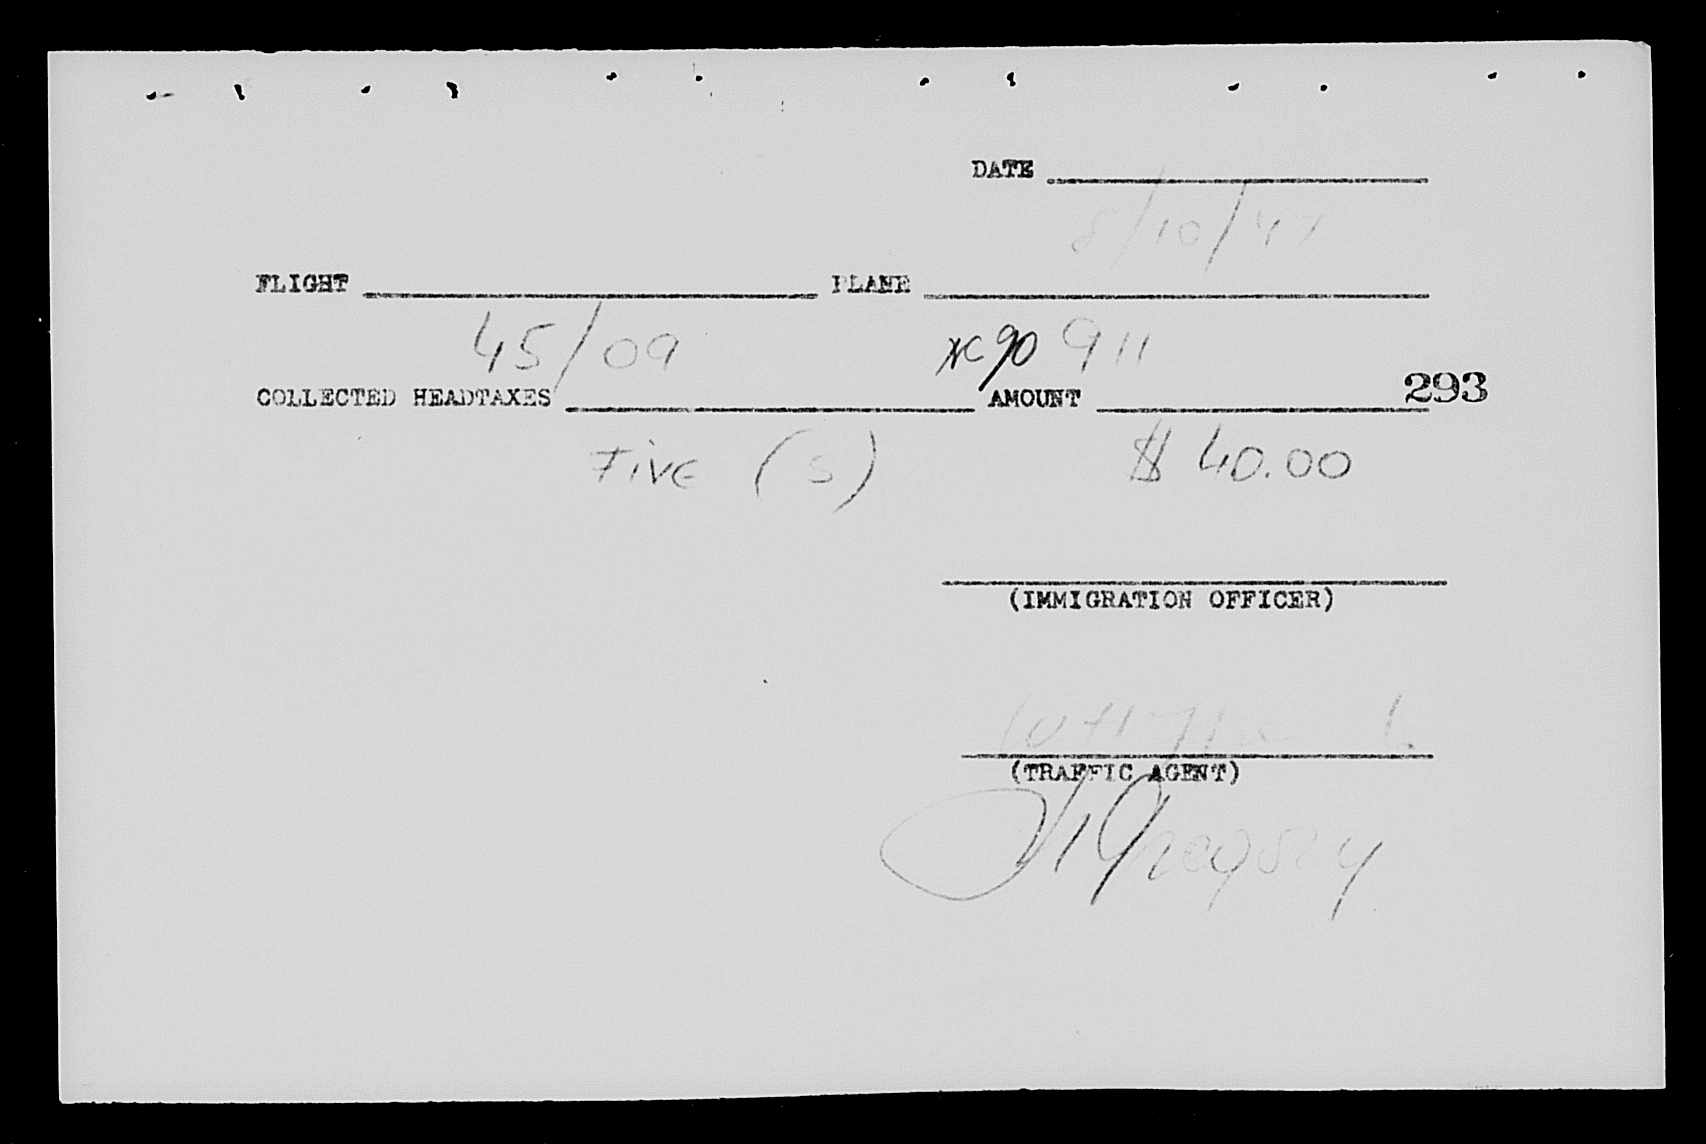 DATE
8/10/47
FLIGHT PLANE
45/09 NC90911
COLLECTED HEADTAXES AMOUNT 293
Five (5) $ 40.00
(IMMIGRATION OFFICER)
(TRAFFIC AGENT)